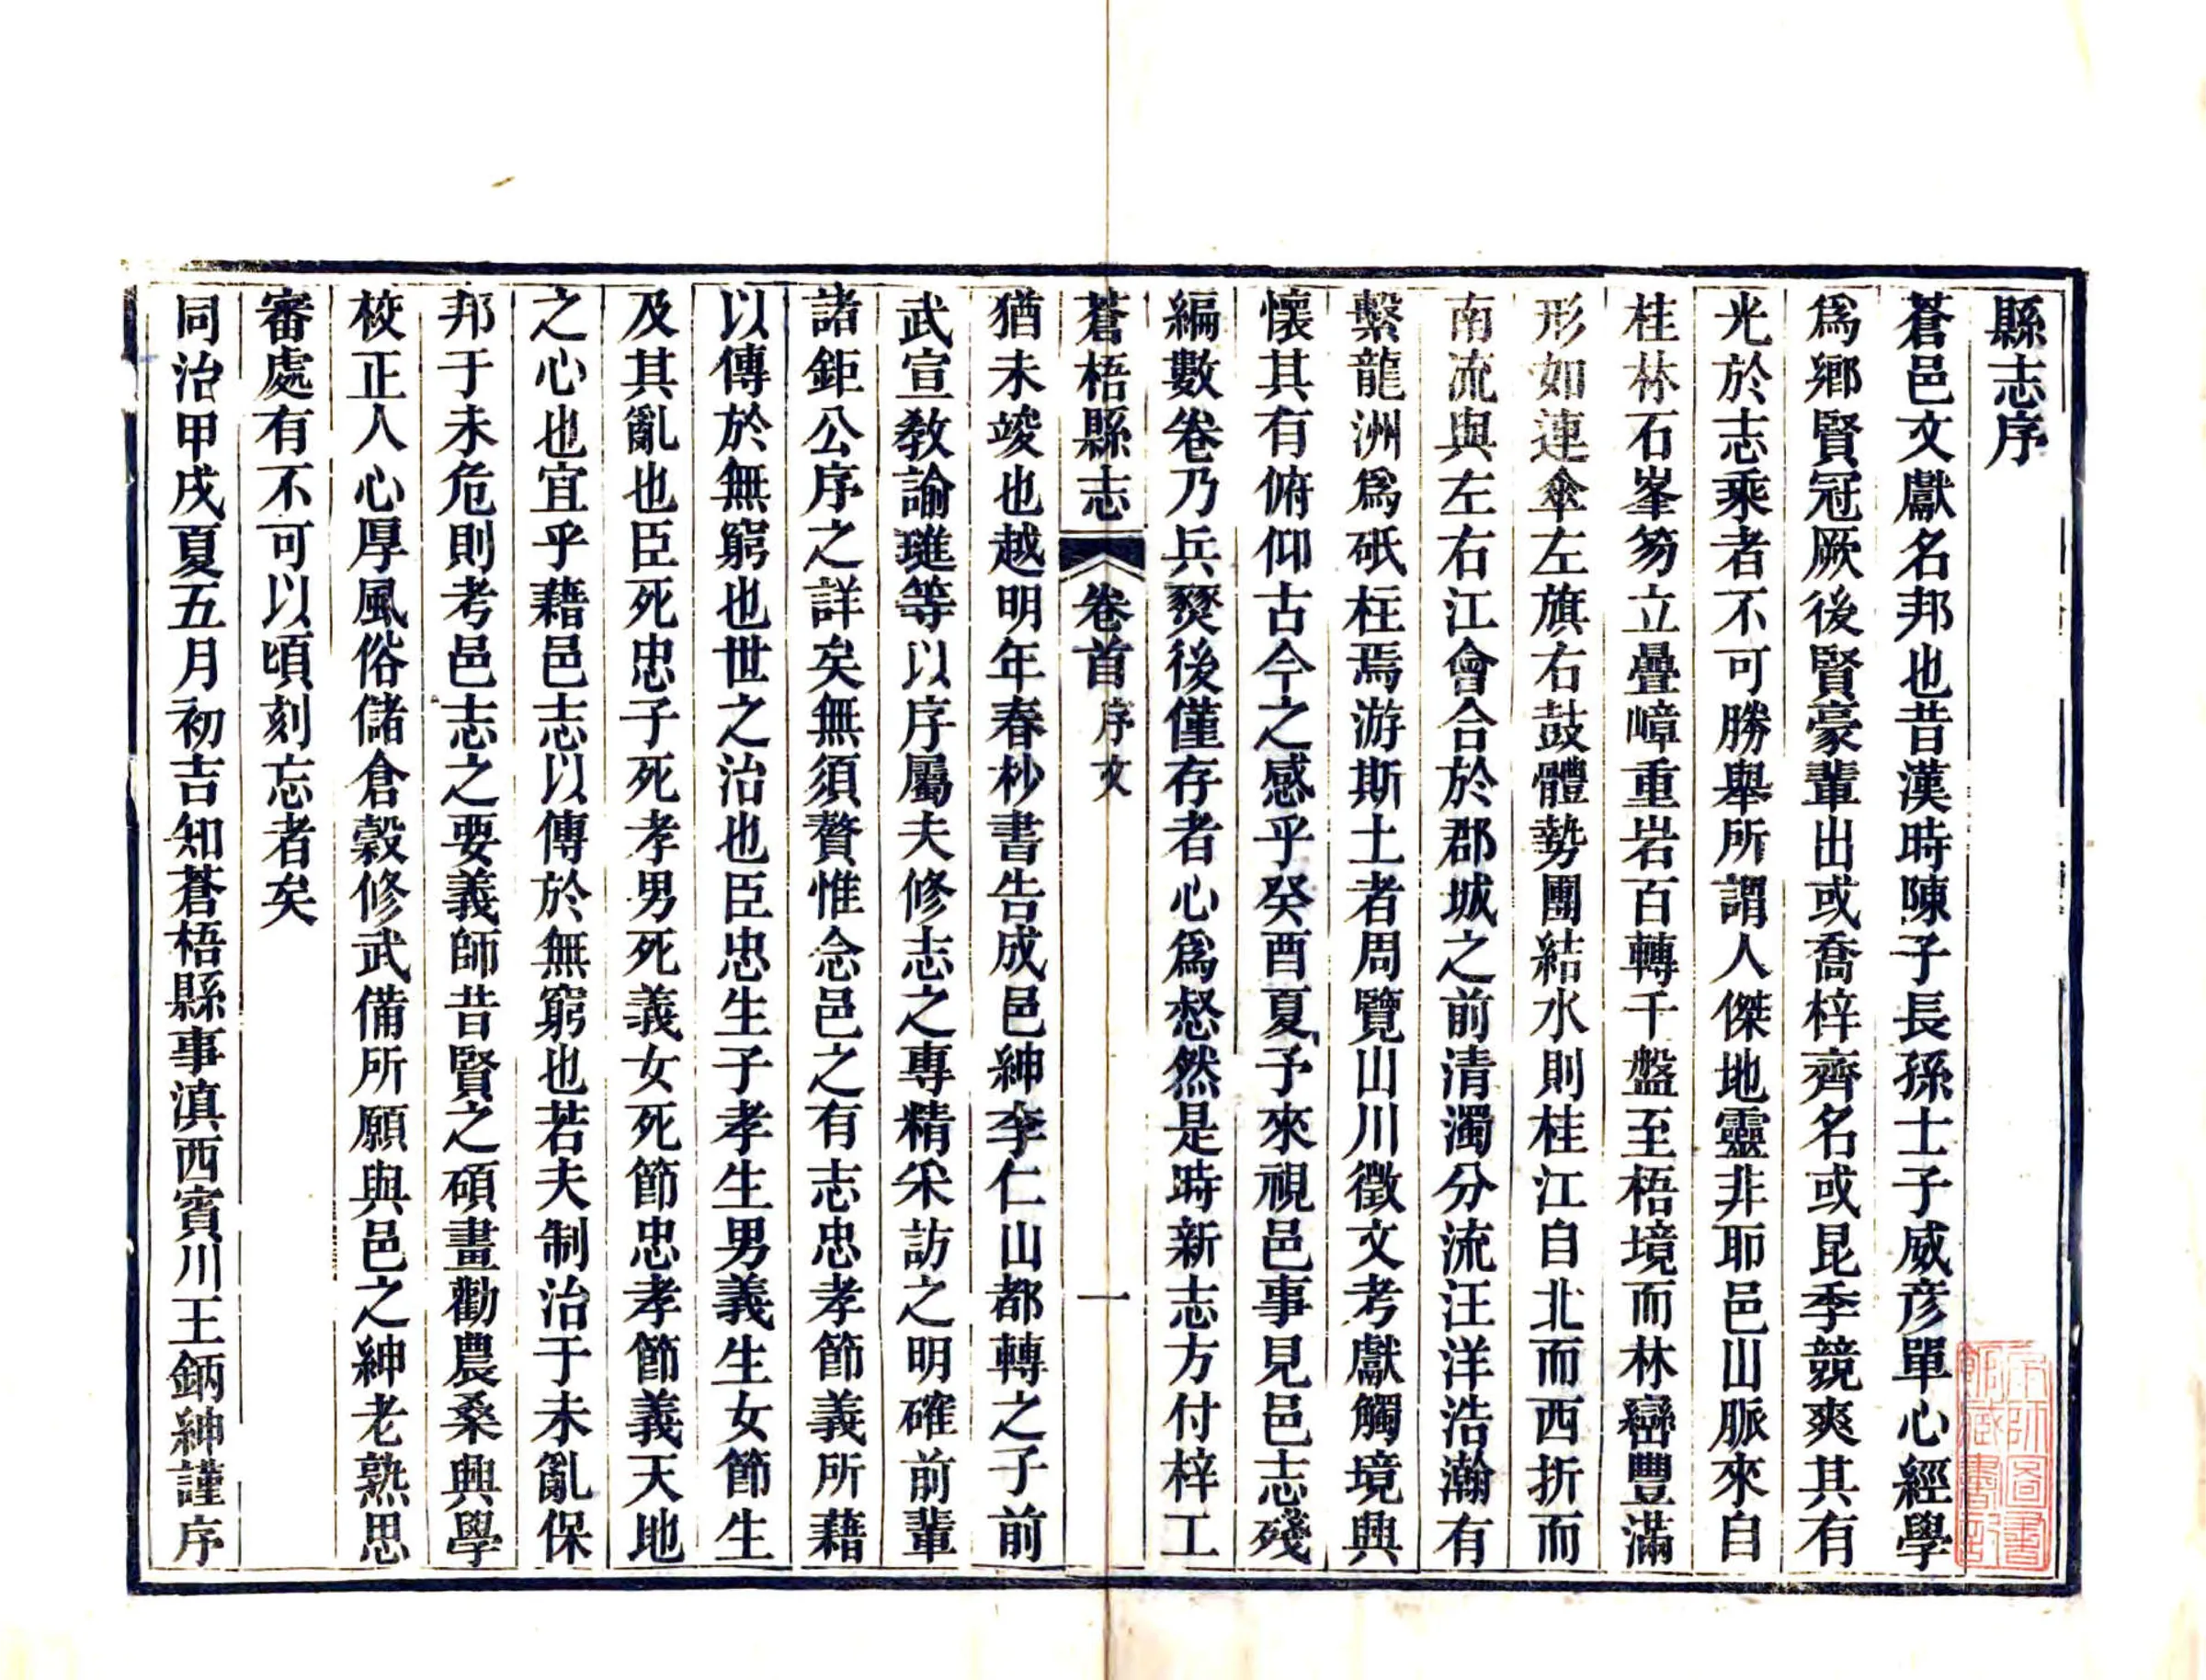 縣志序
蒼邑文獻名邦也昔漢時陳子長孫士子威彥單心經學
爲鄉賢冠厥後賢豪輩出或喬梓齊名或昆季競爽其有
光於志乘者不可勝舉所謂人傑地靈非耶邑山脈來自
桂林石峯笏立疊嶂重岩百轉千盤至梧境而林巒豐滿
形如連傘左旗右鼓體勢團結水則桂江自北而西折而
南流與左右江會合於郡城之前清濁分流汪洋浩瀚有
繫龍洲爲砥柱焉游斯土者周覽山川徵文考獻觸境興
懷其有俯仰古今之感乎癸酉夏予來視邑事見邑志殘
編數卷乃兵燹後僅存者心爲惄然是時新志方付梓工
蒼梧縣志 卷首 序文 一
猶未竣也越明年春杪書告成邑紳李仁山都轉之子前
武宣教諭璡等以序屬夫修志之專精采訪之明確前輩
諸鉅公序之詳矣無須贅惟念邑之有志忠孝節義所藉
以傳於無窮也世之治也臣忠生子孝生男義生女節生
及其亂也臣死忠子死孝男死義女死節忠孝節義天地
之心也宜乎藉邑志以傳於無窮也若夫制治于未亂保
邦于未危則考邑志之要義師昔賢之碩畫勸農桑興學
校正人心厚風俗儲倉穀修武備所願與邑之紳老熟思
審處有不可以頃刻忘者矣
同治甲戌夏五月初吉知蒼梧縣事滇西賓川王鈵紳謹序